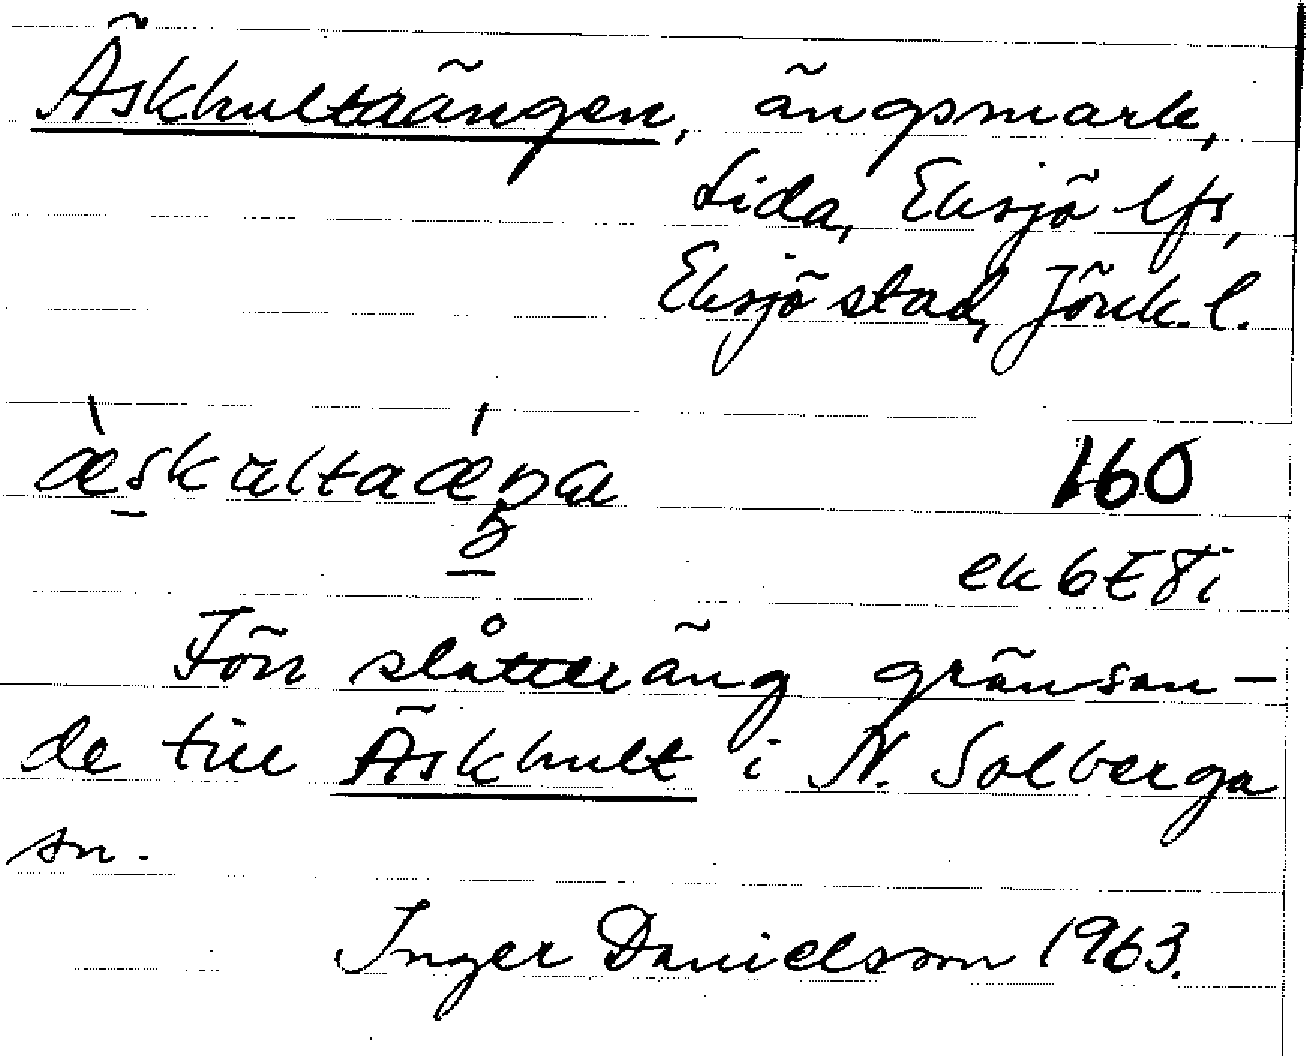 Äskhultaängen, ängsmark,
Lida, Eksjö lfs,
Eksjö stad, Jönk. l.
160
ek 6E8i
Förr slåtteräng gränsan-
de till Äskhult i N. Solberga
sn.
Inger Danielsson 1963.